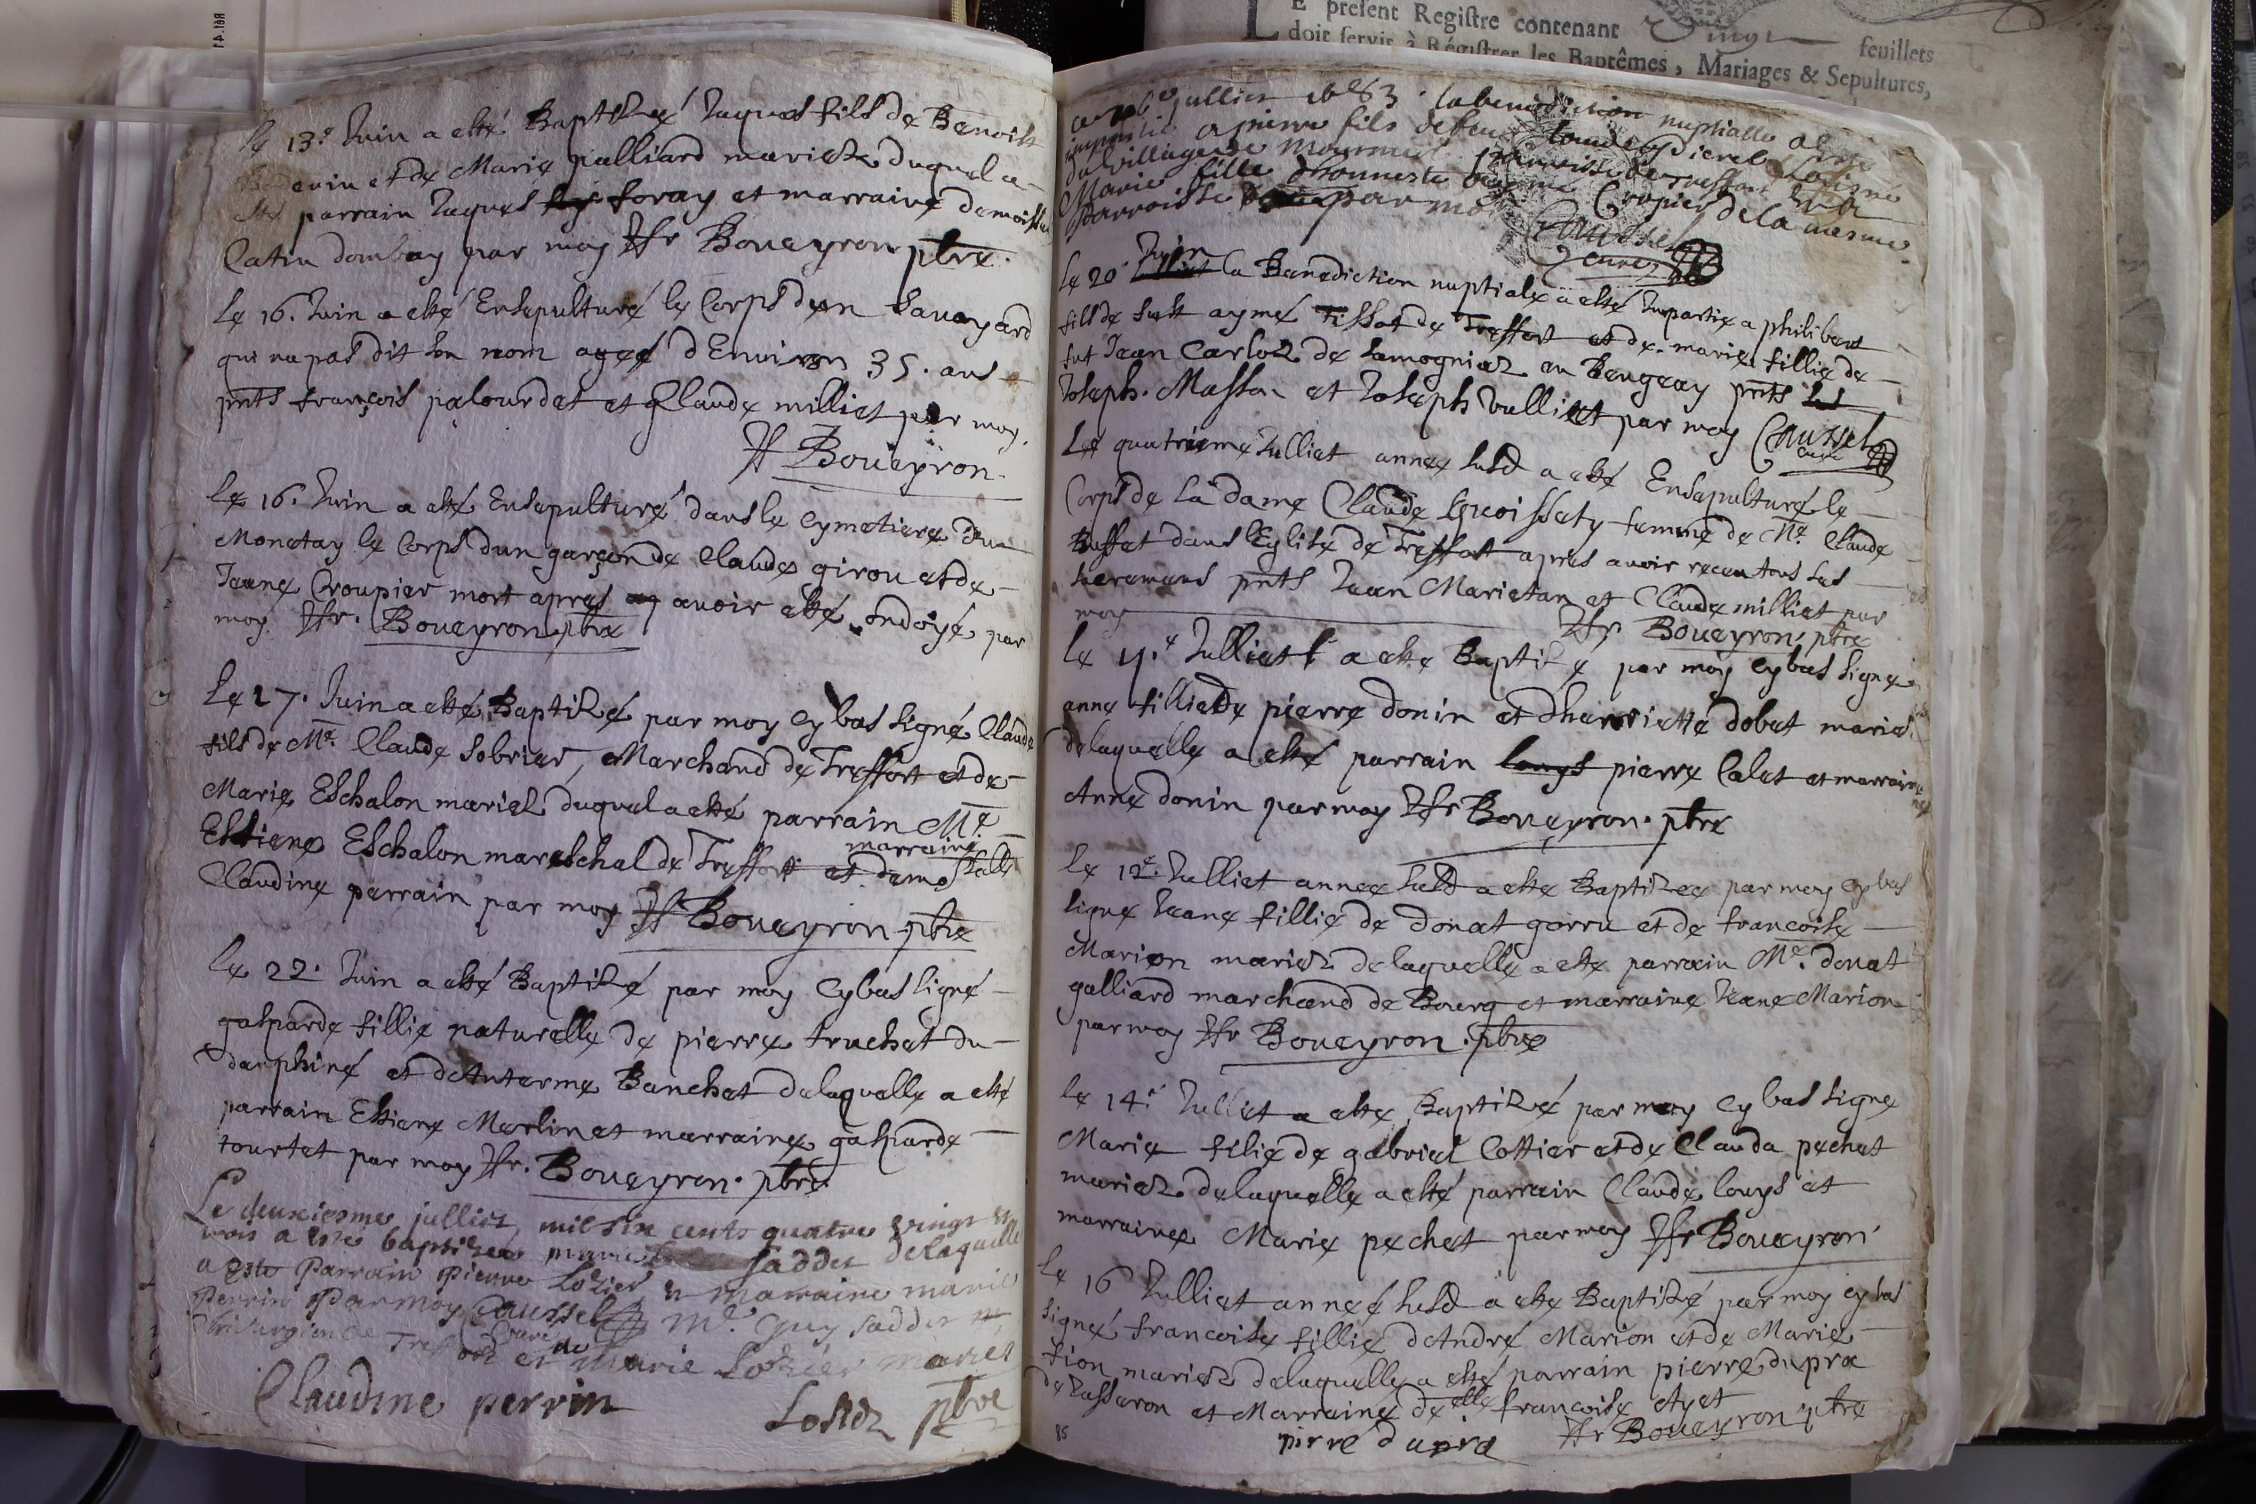 Rél.41
E present Registre contenant vingt feuillets
doit servir à Régistrer les Baptêmes, Mariages & Sepultures,
Le 13.e Juin a esté Baptizé Jaques fils de Benoist
et de Marie palliard mariez duquel a
esté parrain Jaques foray et marraine demoiselle
Catin dombay par moy Boueyron ptre.
Le 16. Juin a esté Ensepulturé le Corps d'un Sauoyard
qui na pas dit son nom ageé d'Environ 35. ans
pnts françois palourdet et Claude milliet par moy.
Boueyron
Le 16. Juin a esté Ensepulturé dans le Cymetiere du
Monetay le Corps dun garçon de Claude girou et de
Jeane Croupier mort apres avoir esté ondoyé par
moy Boueyron ptre
Le 27. Juin a esté Baptizé par moy cy bas signé Claude
fils de Me. Claude Sobrier, Marchand de Treffort et de
Marie Eschalon mariez duquel a esté parrain Me.
Estiene Eschalon mareschal de Treffort et marraine
Claudine perrain par moy Boueyron ptre
Le 22. Juin a esté Baptizé par moy Cy bas signé
gasparde fillie naturelle de pierre truchet du
dauphiné et d'Anterme Banchet delaquelle a esté
parrain Estiene Merlin et marraine gasparde
tourtet par moy Boueyron. ptre
Le deuxiesme julliet, mil six cents quatre vingt et
trois a este baptizee marie sadder delaquelle
a esté Parrain pierre Lozier et Marraine marie
perrin Par moy Caussel Me. Guy sadder
Chirurgien de Treffort et de Marie Lozier mariez
Claudine perrin
Losier ptre
julliet 1683. la benediction nuptialle a esté
impartie a pierre fils de feu
du village de
Marie fille d'honneste Cropier de la mesme
Parroisse par moy
Caussel
curé
Le 20. Juin la Benediction nuptiale a esté Impartie a philibert
fils de fust aymé Tissot de Treffort et de marie fillie de
fut Jean Carloz de Samogniaz en Beugeay pnts
Joseph. Masson et Joseph Vulliet par moy Caussel
curé
Le quatriéme Julliet anneé susd a esté Ensepulturé le
Corps de la dame Claude femme de Me. Claude
Buffet dans l'Eglise de Treffort apres avoir receu tous ses
Sacremens pnts Jean Marietan et Claude milliet par
moy Boueyron. ptre
Le 11.e Julliet a este Baptizé par moy cy bas signé
anne fillie de pierre donin et d'henriette dobet mariez
delaquelle a esté parrain pierre Calet et marraine
Anne donin par moy Boueyron. ptre
Le 12.e Julliet anneé susd a este Baptizeé par moy cy bas
signé Jeane fillie de donat gorru et de francoise
Marion mariez delaquelle a este parrain Me. donat
galliard marchand de Bourg et marraine Jeane Marion
par moy Boueyron. ptre
Le 14.e Julliet a este Baptizé par moy cy bas signe
Marie filie de gabriel Cottier et de Clauda pechet
mariez delaquelle a esté parrain Claude louys et
marraine Marie pechet par moy Boueyron
Le 16 Julliet anneé susd a este Baptizé par moy cy bas
signé francoise fillie d'André Marion et de Marie
fion mariez delaquelle a esté parrain pierre dupra
de Jasseron et Marraine delle francoise Ayet
pirre dupra Boueyron ptre
85